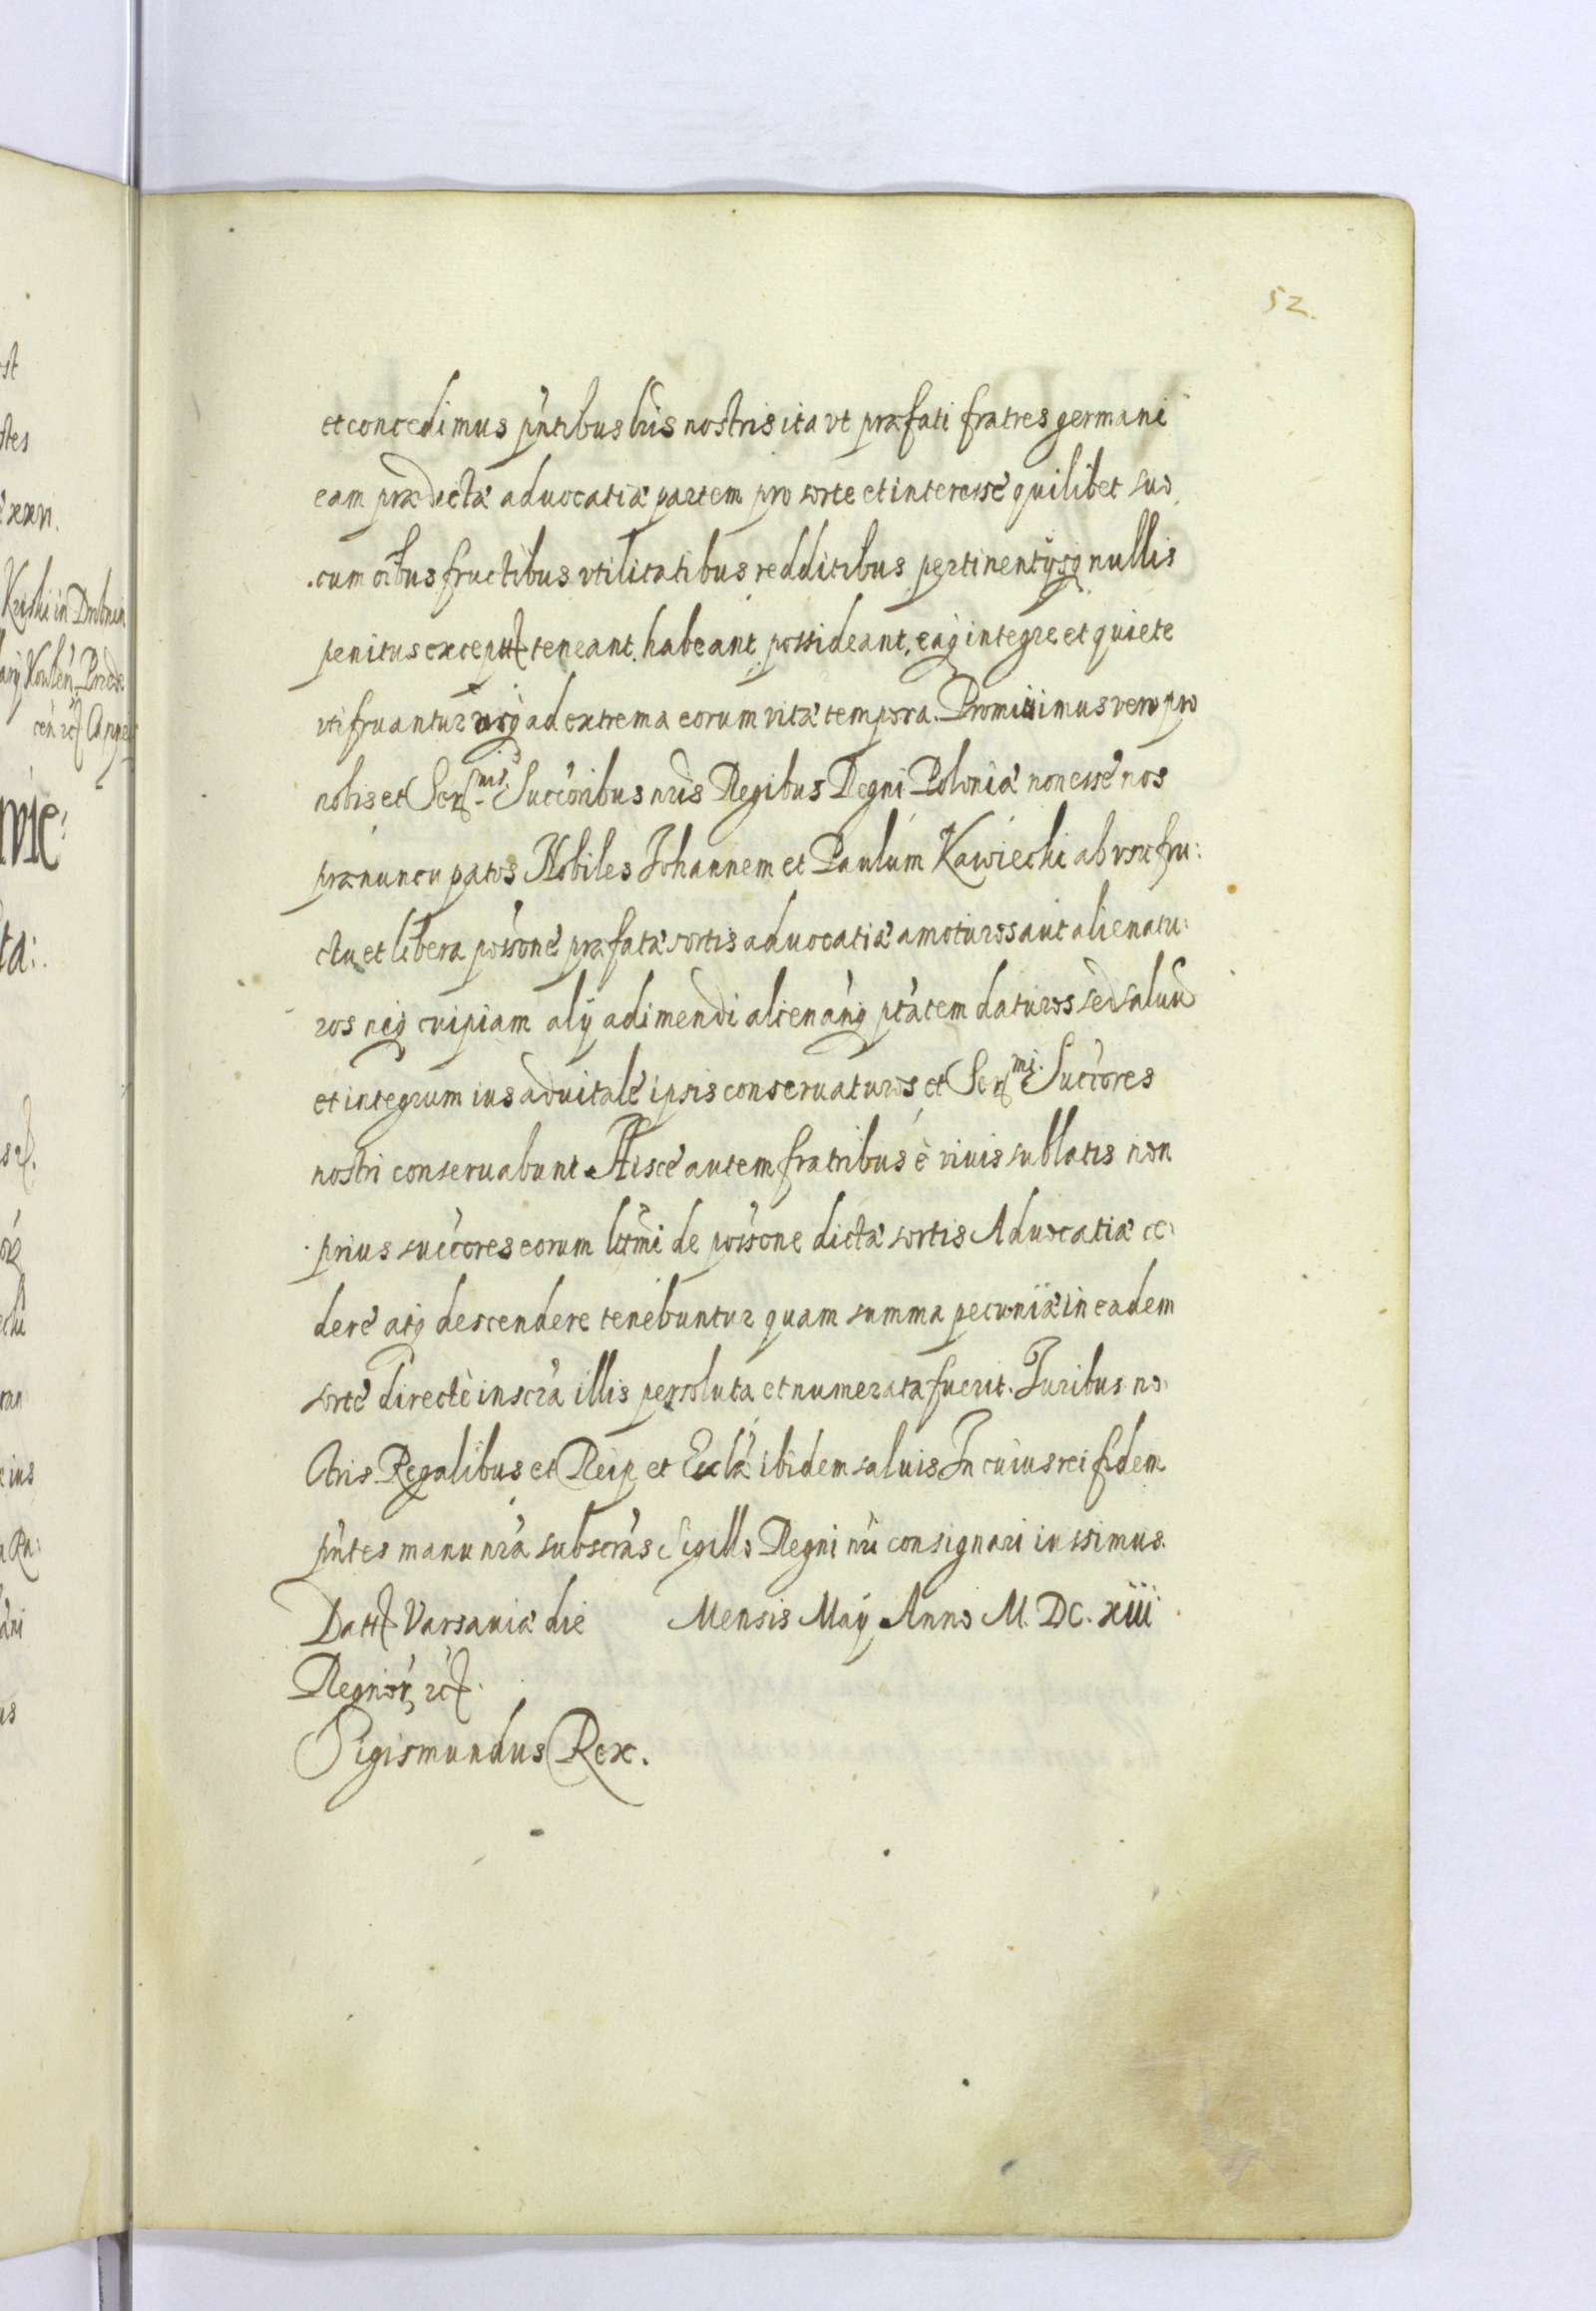 52.
et concedimus pńtibus lr̃is nostris ita vt præfati fratres germani
eam prædictæ aduocatiæ partem pro sorte et interesse quilibet suo
cum oĩbus fructibus vtilitatibus redditibus pertinentÿsq nullis
penitus except teneant habeant possideant, eaq integre et quiete
vtifruantur vsq ad extrema eorum vitæ tempora. Promittimus vero pro
nobis et Serᵐⁱˢ Succoribus nr̃is Regibus Regni Poloniæ non esse nos
prænuncupatos Nobiles Johannem et Paulum Kawiecki ab vsu fru:
ctu et libera possone præfatæ sortis aduocatiæ amoturos aut alienatu:
ros neq cuipiam alÿ adimendi alienanq ptatem daturos sed saluũ
et integrum ius aduitale ipsis conseruaturos et Serᵐⁱ Succores
nostri conseruabunt Hisce autem fratribus è viuis sublatis non
prius succores eorum lĩtmi de possone dictæ sortis Aduocatiæ ce
dere atq descendere tenebuntur quam summa pecuniæ in eadem
sorte directè inscra illis persoluta et numerata fuerit. Juribus no
stris Regalibus et Reip et Ecclæ ibidem saluis In cuius rei fidem
pńtes manu nr̃a subscras Sigillo Regni nr̃i consignari iussimus.
Datt Varsauiæ die Mensis Maÿ Anno M. DC. xiii
Regnor
Sigismundus Rex.